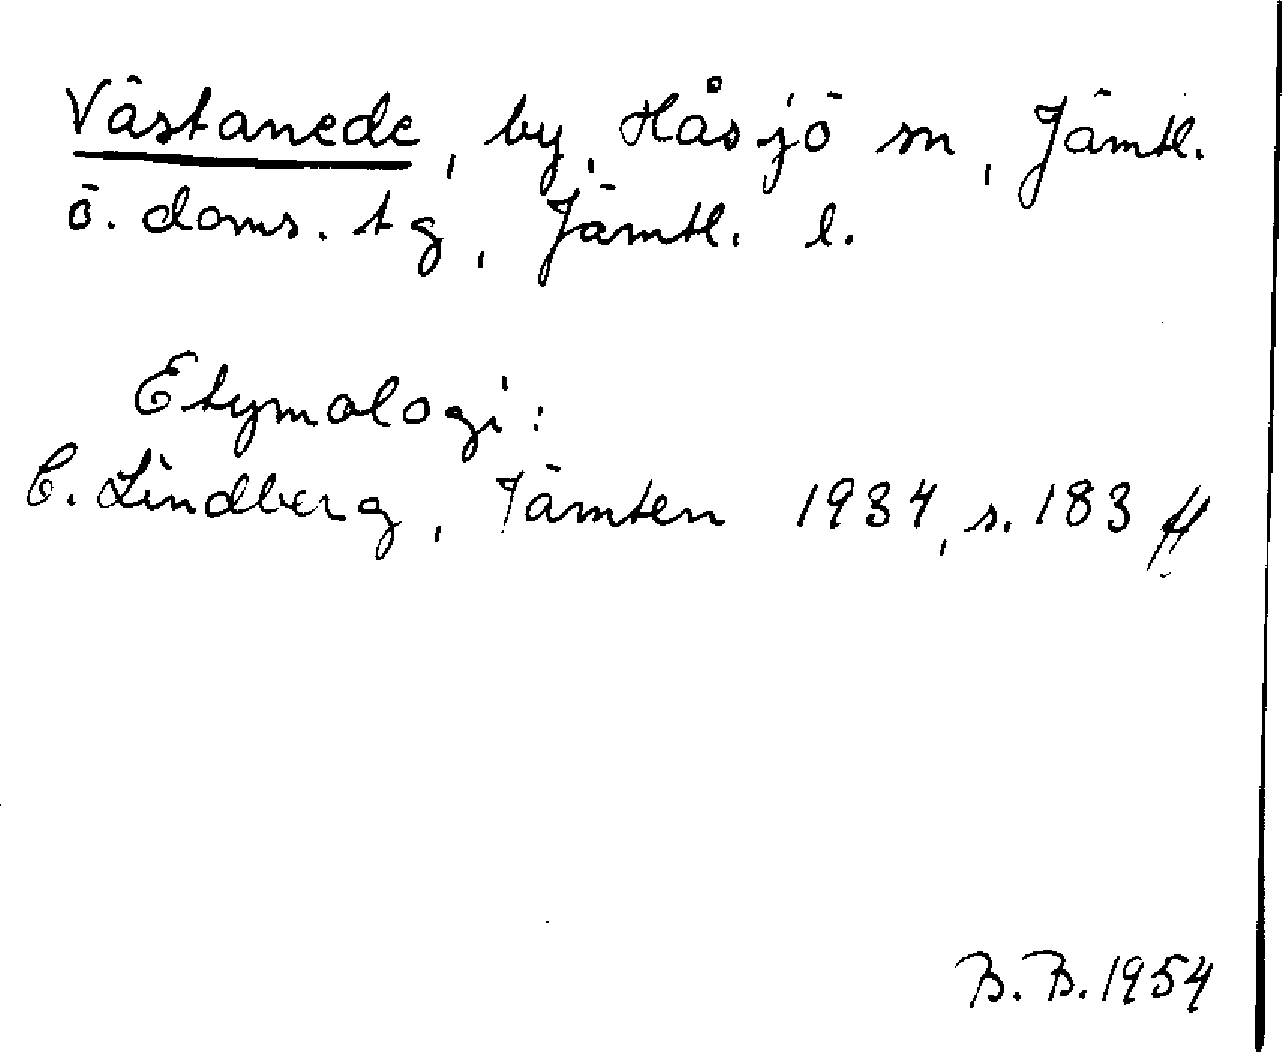 Västanede, by, Håsjö sn, Jämtl.
ö. doms. tg, Jämtl. l.
Etymologi:
C. Lindberg, Jämten 1934, s. 183 ff
B. B. 1954